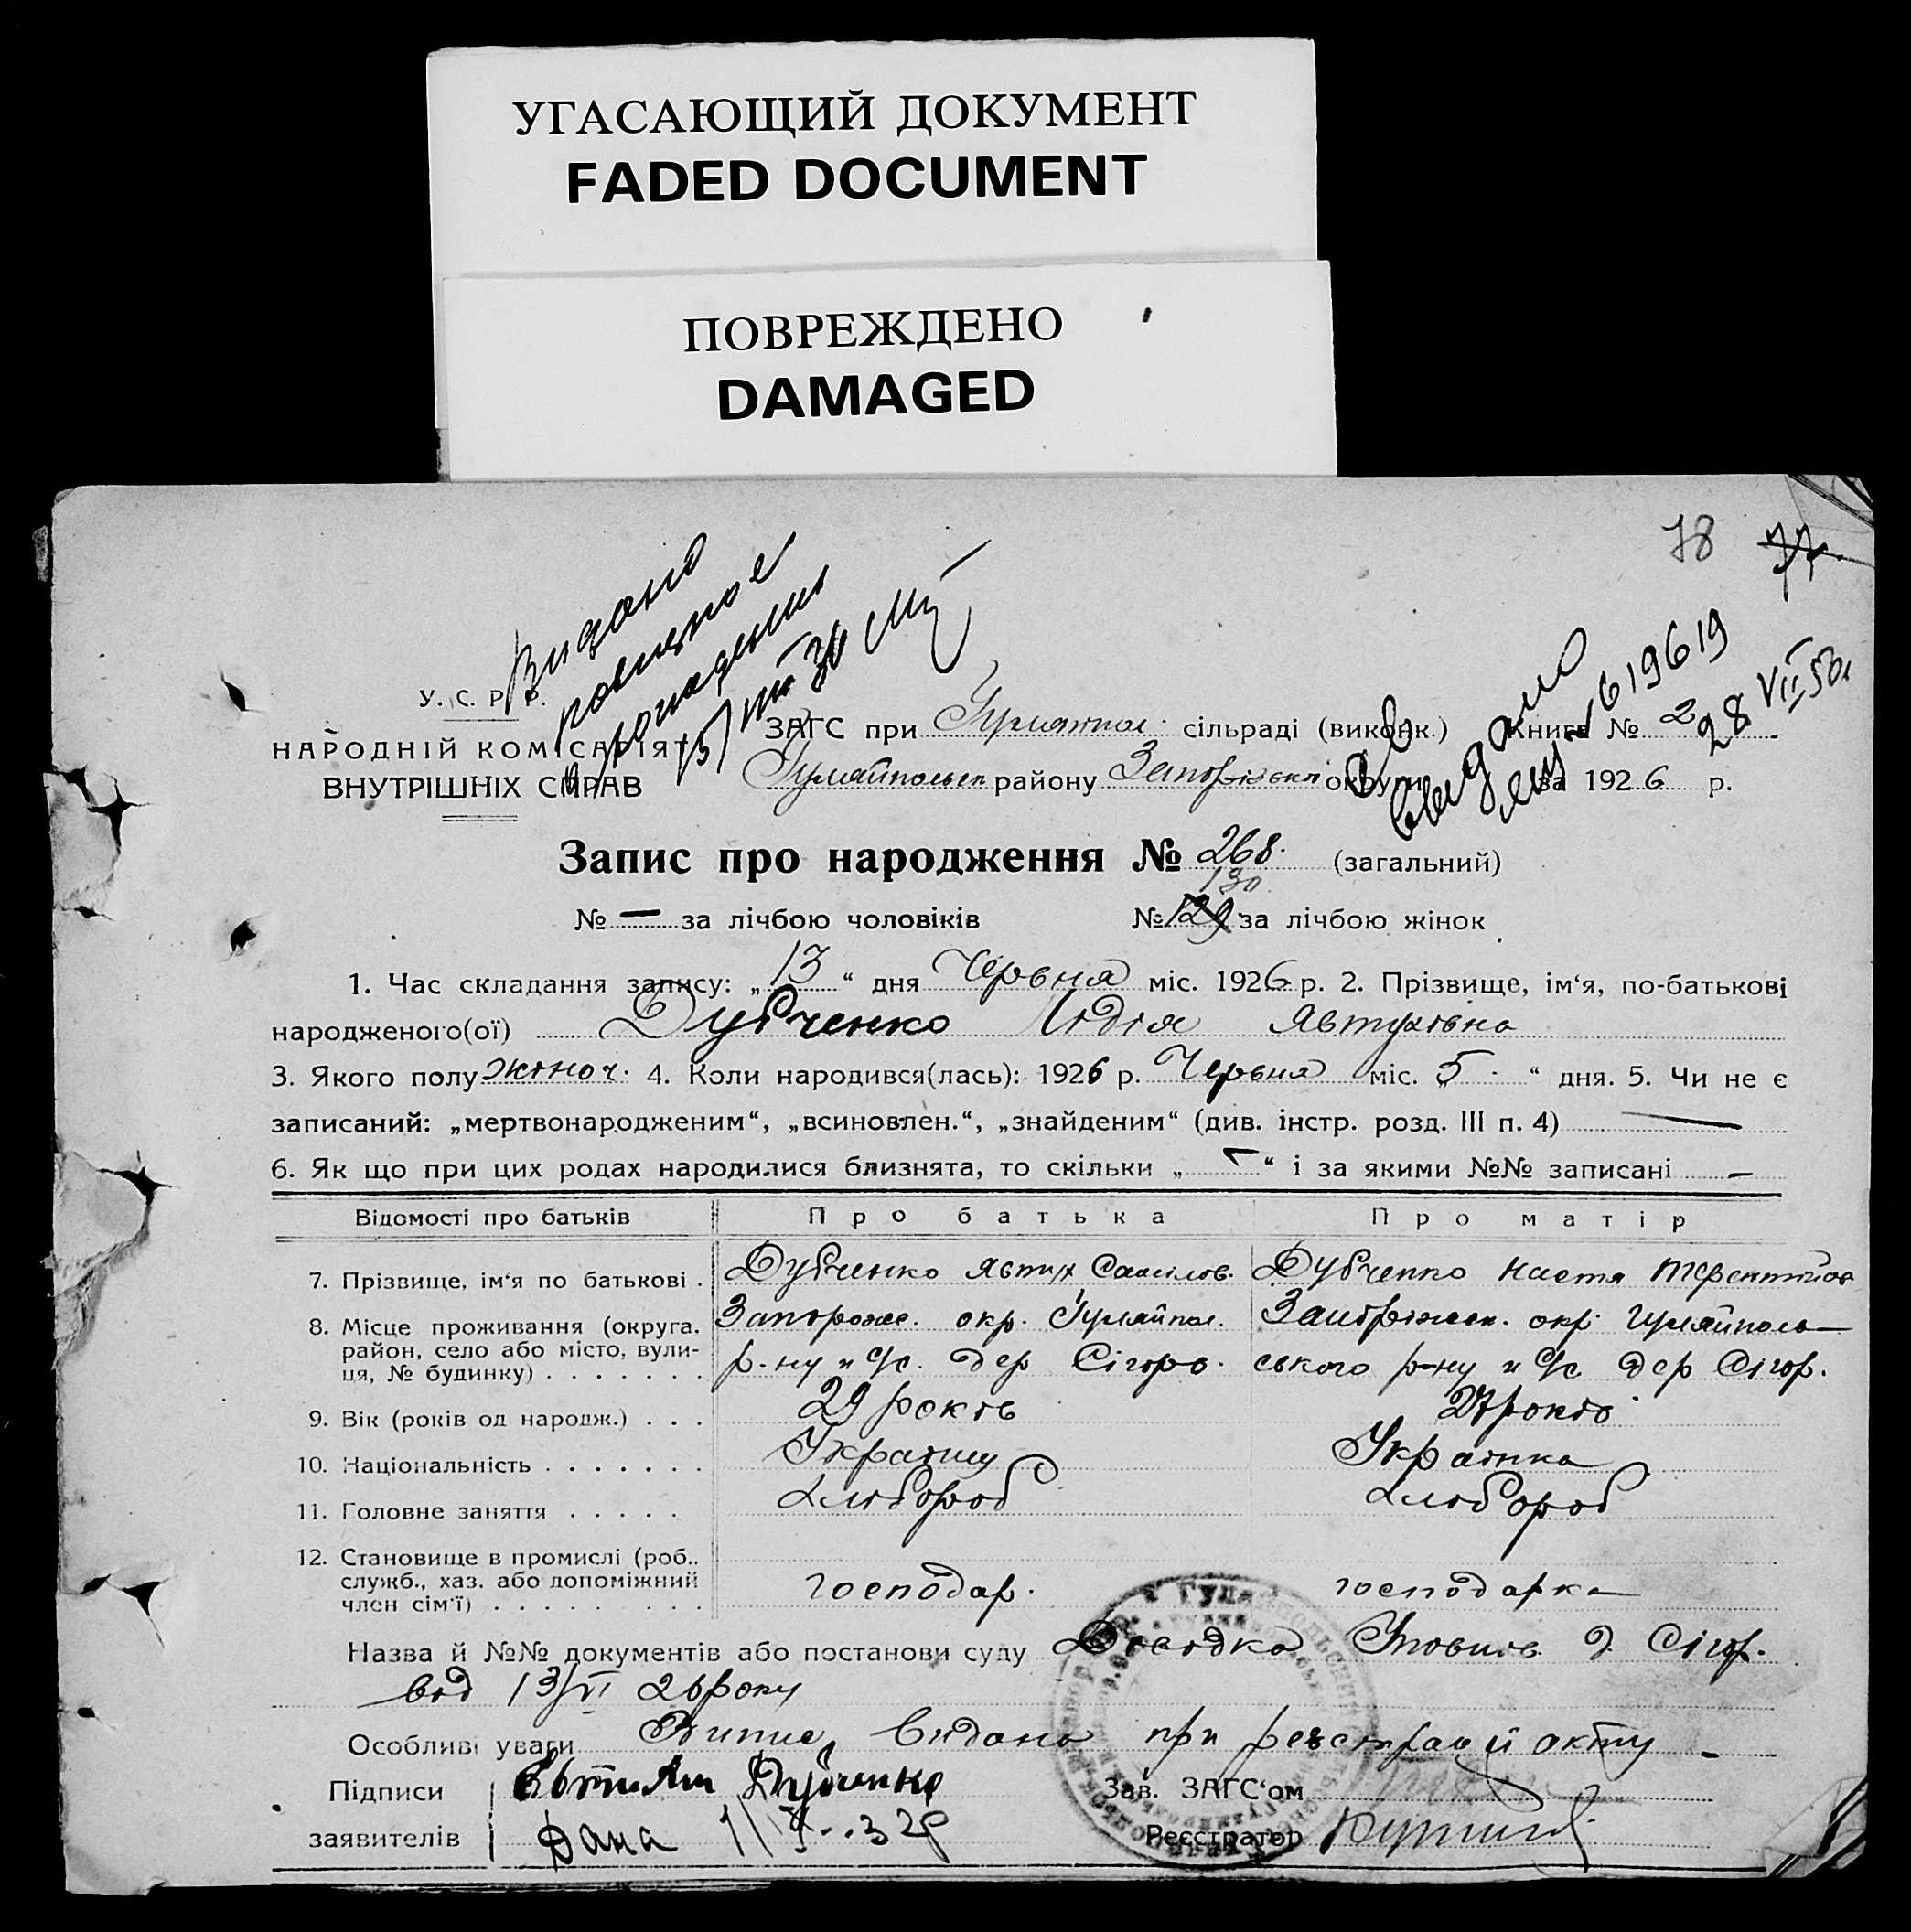 УГАСАЮЩИЙ ДОКУМЕНТ
FADED DOCUMENT
ПОВРЕЖДЕНО
DAMAGED
78 77
Видано
повторное
619619
28 VII 50
У. С. Р. Р.
НАРОДНІЙ КОМІСАРІЯТ
ВНУТРІШНІХ СПРАВ
ЗАГС при Гуляйпол. сільраді (виконк.) Книга № 2
Гуляйпольськ району Запорізької округи за 1926 р.
Запис про народження № 268. (загальний)
130
№ — за лічбою чоловіків № 129 за лічбою жінок
1. Час складання запису: „13“ дня Червня міс. 1926 р. 2. Прізвище, ім‘я, по-батькові
народженого(ої) Дубченко Лідія Явтухівна
3. Якого полу жіноч. 4. Коли народився(лась): 1926 р. Червня міс. „5“ дня. 5. Чи не є
записаний: „мертвонародженим“, „всиновлен.“, „знайденим“ (див. інстр. розд. III п. 4) —
6. Як що при цих родах народилися близнята, то скільки „—“ і за якими №№ записані —
Відомості про батьків Про батька Про матір
7. Прізвище, ім‘я по батькові . Дубченко Явтух Дубченко Настя Терентійов
8. Місце проживання (округа, район, село або місто, вулиця, № будинку) . . . . . . . Запорожс. окр. Гуляйпол. Запоріжськ. окр. Гуляйполь-
р-ну и с/с. дер Сігорс. ського р-ну и с/с. дер Сігор.
9. Вік (років од народж.) . . . 29 років 27 років
10. Національність . . . . . . . Українец Українка
11. Головне заняття . . . . . Хлібороб Хлібороб
12. Становище в промислі (роб., служб., хаз. або допоміжний член сім‘ї) . . . . . . . . . господар. господарка
Назва й №№ документів або постанови суду Довідка д. Сігор.
від 13/VI 26 року
Особливі уваги Випис видано при реєстрації акту —
Підписи Дубченко Зав. ЗАГС‘ом
заявителів Дана Реєстратор